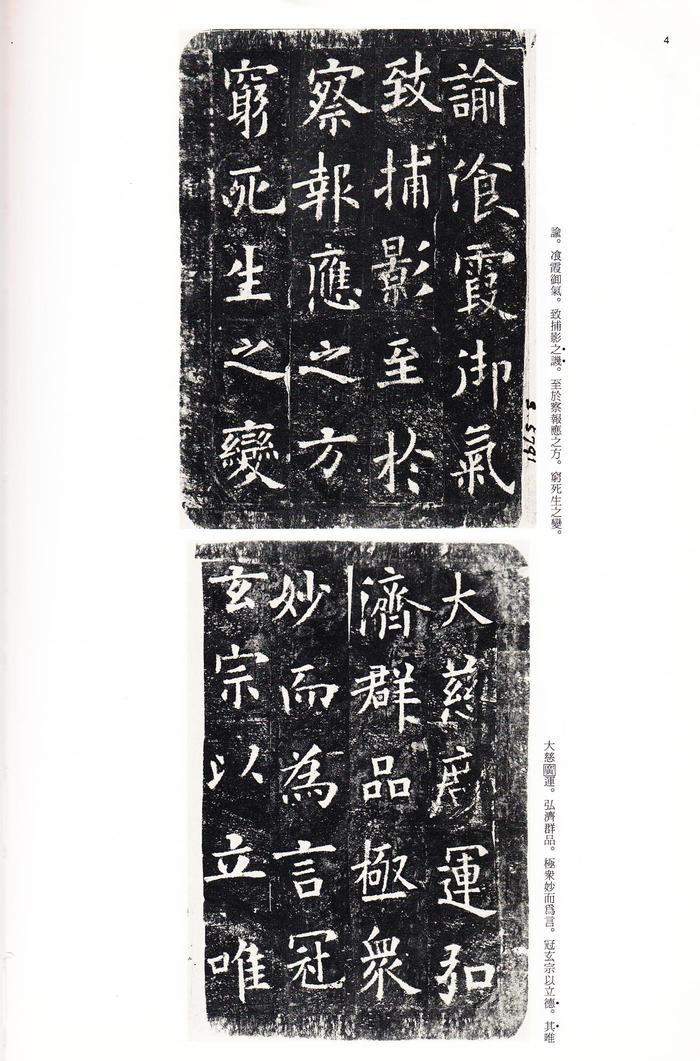 4
諭飡霞御氣
致捕影至於
察報應之方
窮死生之變
諭。飡霞御氣。致捕影之譏。至於察報應之方。窮死生之變。
1675-8
大慈廣運弘
濟群品極衆
妙而為言冠
玄宗以立唯
大慈廣運。弘濟群品。極衆妙而爲言。冠玄宗以立德。其唯